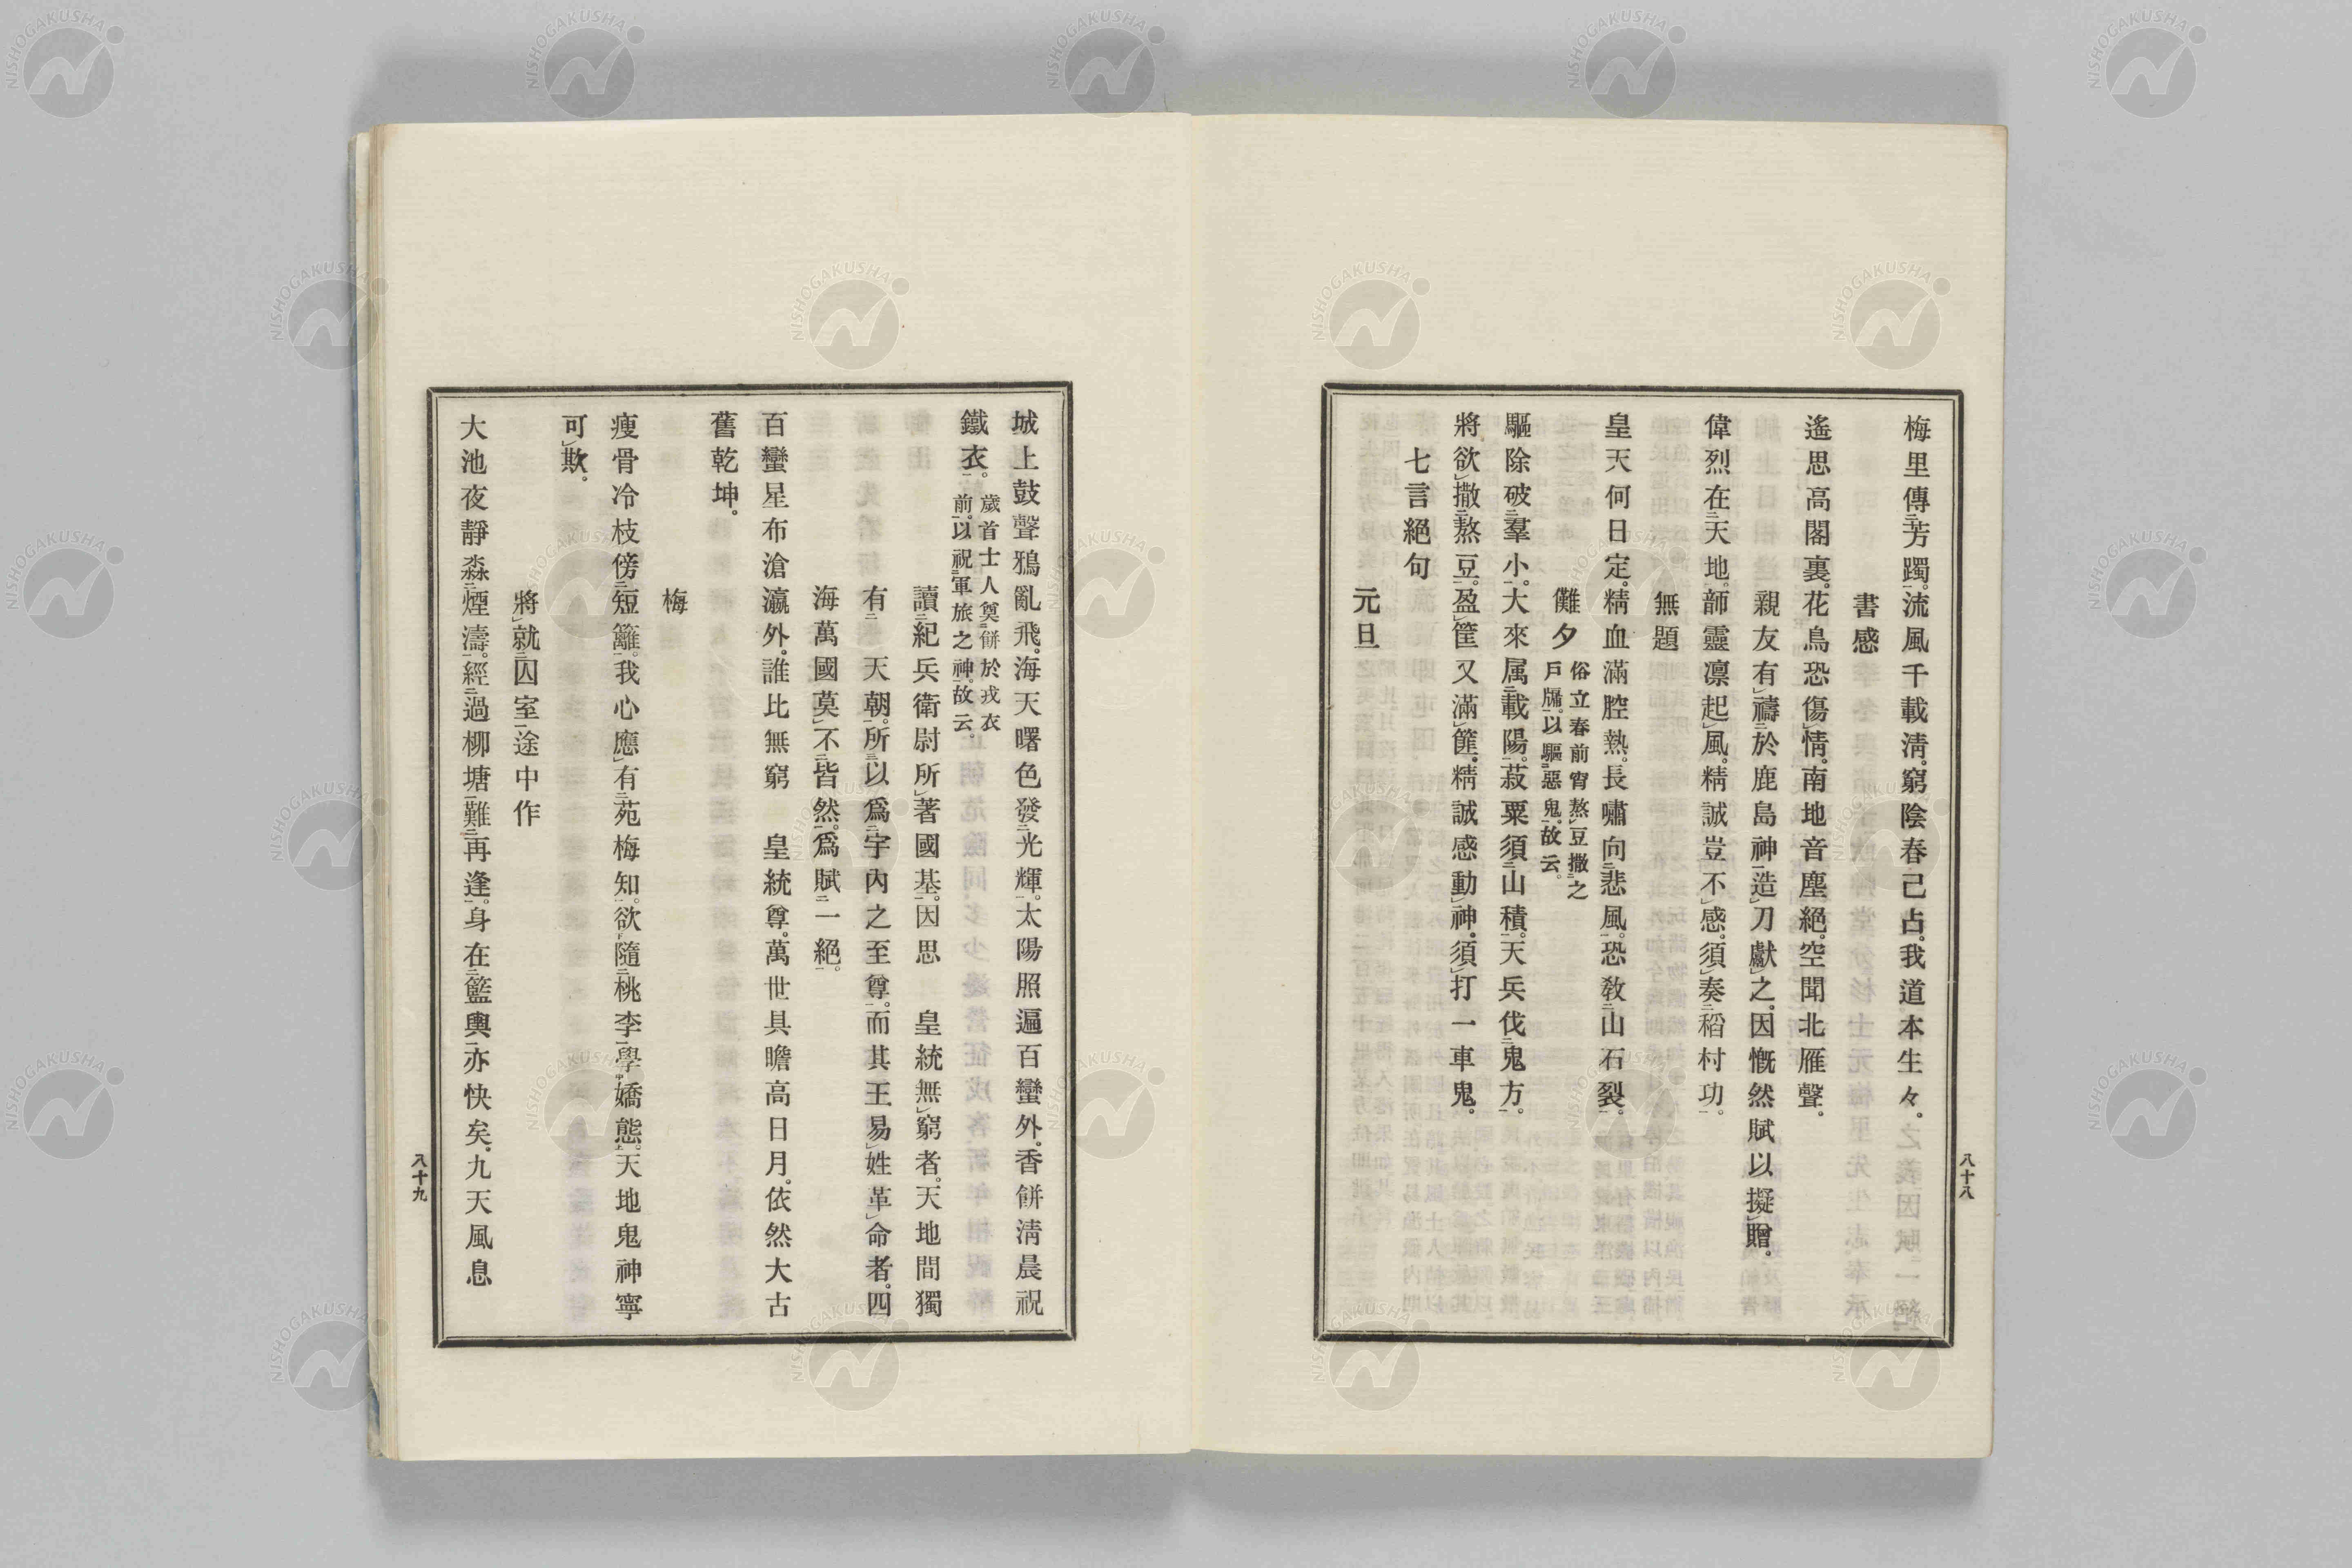 梅里傳芳躅。流風千載淸。窮陰春已占。我道本生々。
書感
遙思高閣裏。花鳥恐傷情。南地音塵絕。空聞北雁聲。
親友有禱於鹿島神造刀獻之。因慨然賦以擬贈。
偉烈在天地。師靈凛起風。精誠豈不感。須奏稻村功。
無題
皇天何日定。精血滿腔熱。長嘯向悲風。恐敎山石裂。
儺夕 俗立春前宵熬豆撒之
戶牖。以驅惡鬼。故云。
驅除破羣小。大來属載陽。菽粟須山積。天兵伐鬼方。
將欲撒熬豆。盈筐又滿篚。精誠感動神。須打一車鬼。
七言絕句
元旦
八十八
城上鼓聲鴉亂飛。海天曙色發光輝。太陽照遍百蠻外。香餅淸晨祝
鐵衣。 歲首士人奠餅於戎衣
前。以祝軍旅之神。故云。
讀紀兵衛尉所著國基。因思 皇統無窮者。天地間獨
有 天朝。所以爲宇內之至尊。而其王易姓革命者。四
海萬國莫不皆然。爲賦一絕。
百蠻星布滄瀛外。誰比無窮 皇統尊。萬世具瞻高日月。依然大古
舊乾坤。
梅
瘦骨冷枝傍短籬。我心應有苑梅知。欲隨桃李學嬌態。天地鬼神寧
可欺。
將就囚室途中作
大池夜靜淼煙濤。經過柳塘難再逢。身在籃輿亦快矣。九天風息
八十九
NISHOGAKUSHA